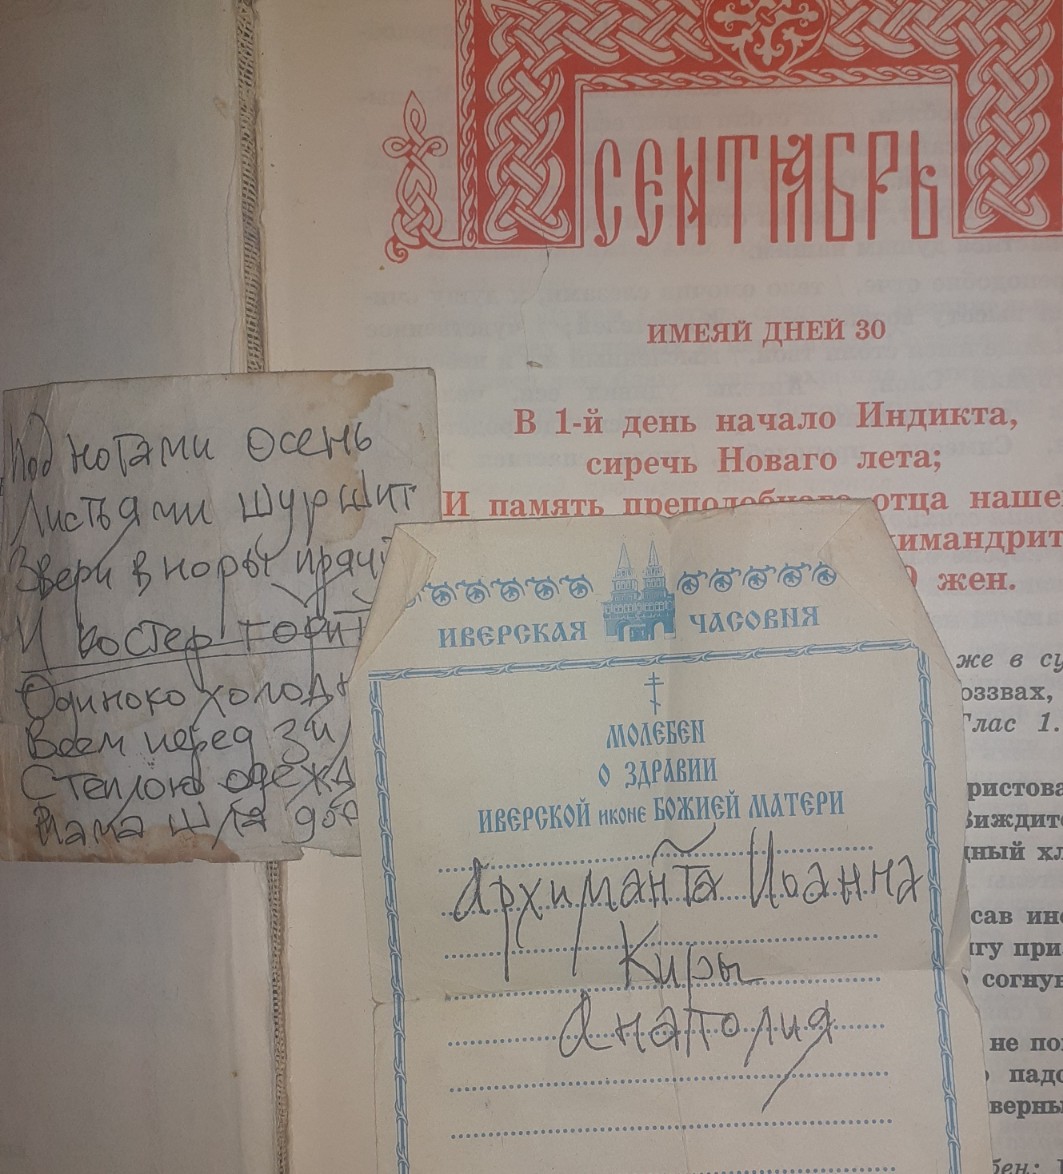 СЕНТЯБРЬ
ИМЕЯЙ ДНЕЙ 30
В 1-й день начало Индикта,
сиречь Новаго лета;
И память преподобнаго отца наше
имандрит
жен.
же в су
оззвах,
Глас 1.
ристова
Виждите
дный хл
сав ин
гу при
согну
не по
падо
верны
бен:
Под ногами осень
Листьями шуршит
Звери в норы пряч
И костер горит
Одиноко холодн
Всем перед зи
Степлою одежд
Мама шла до
ИВЕРСКАЯ ЧАСОВНЯ
МОЛЕБЕН
О ЗДРАВИИ
ИВЕРСКОЙ иконе БОЖИЕЙ МАТЕРИ
Архиманта Иоанна
Киры
Анатолия